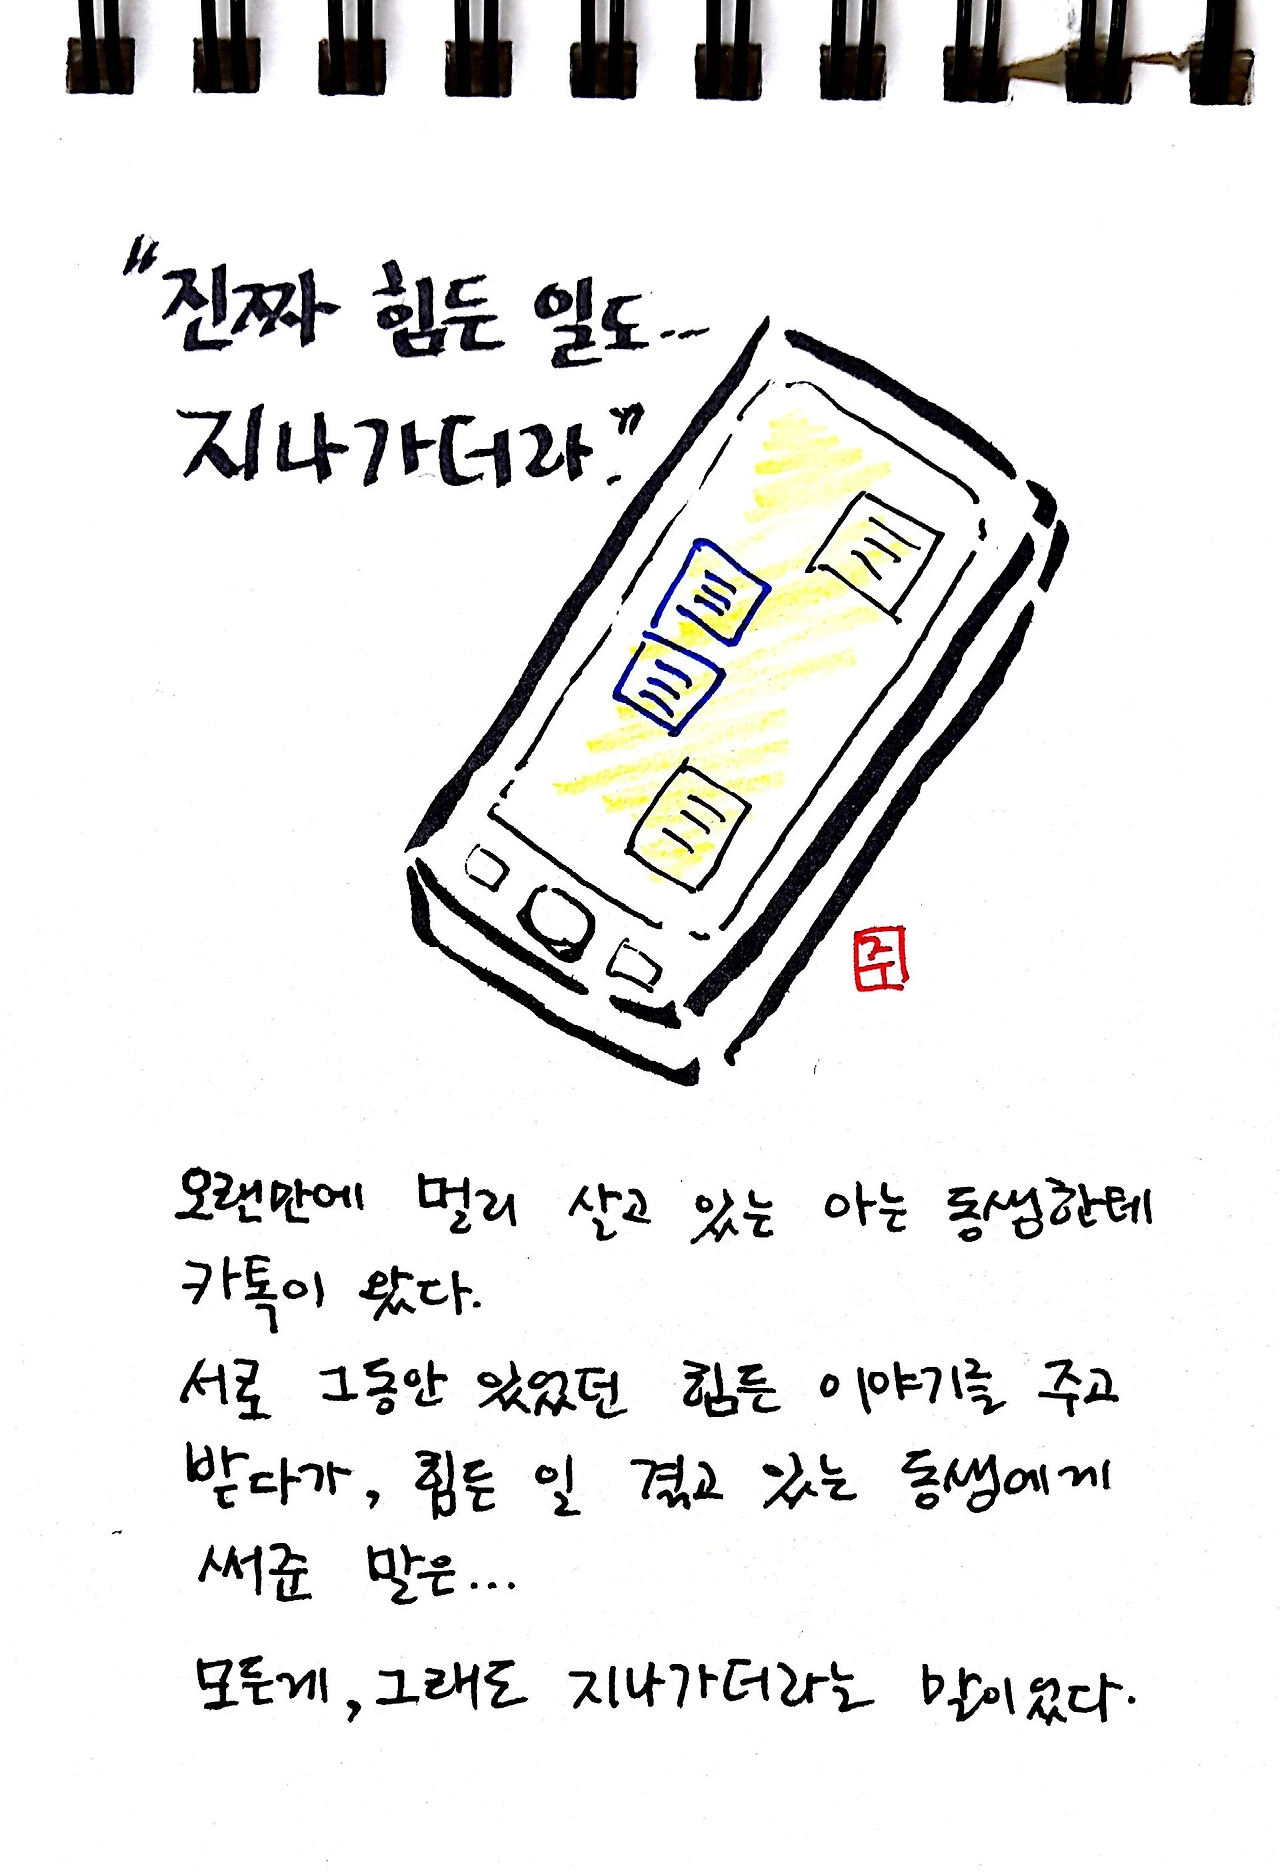 "진짜 힘든 일도...
지나가더라."
주
오랜만에 멀리 살고 있는 아는 동생한테
카톡이 왔다.
서로 그동안 있었던 힘든 이야기를 주고
받다가, 힘든 일 겪고 있는 동생에게
써준 말은...
모든게, 그래도 지나가더라는 말이었다.